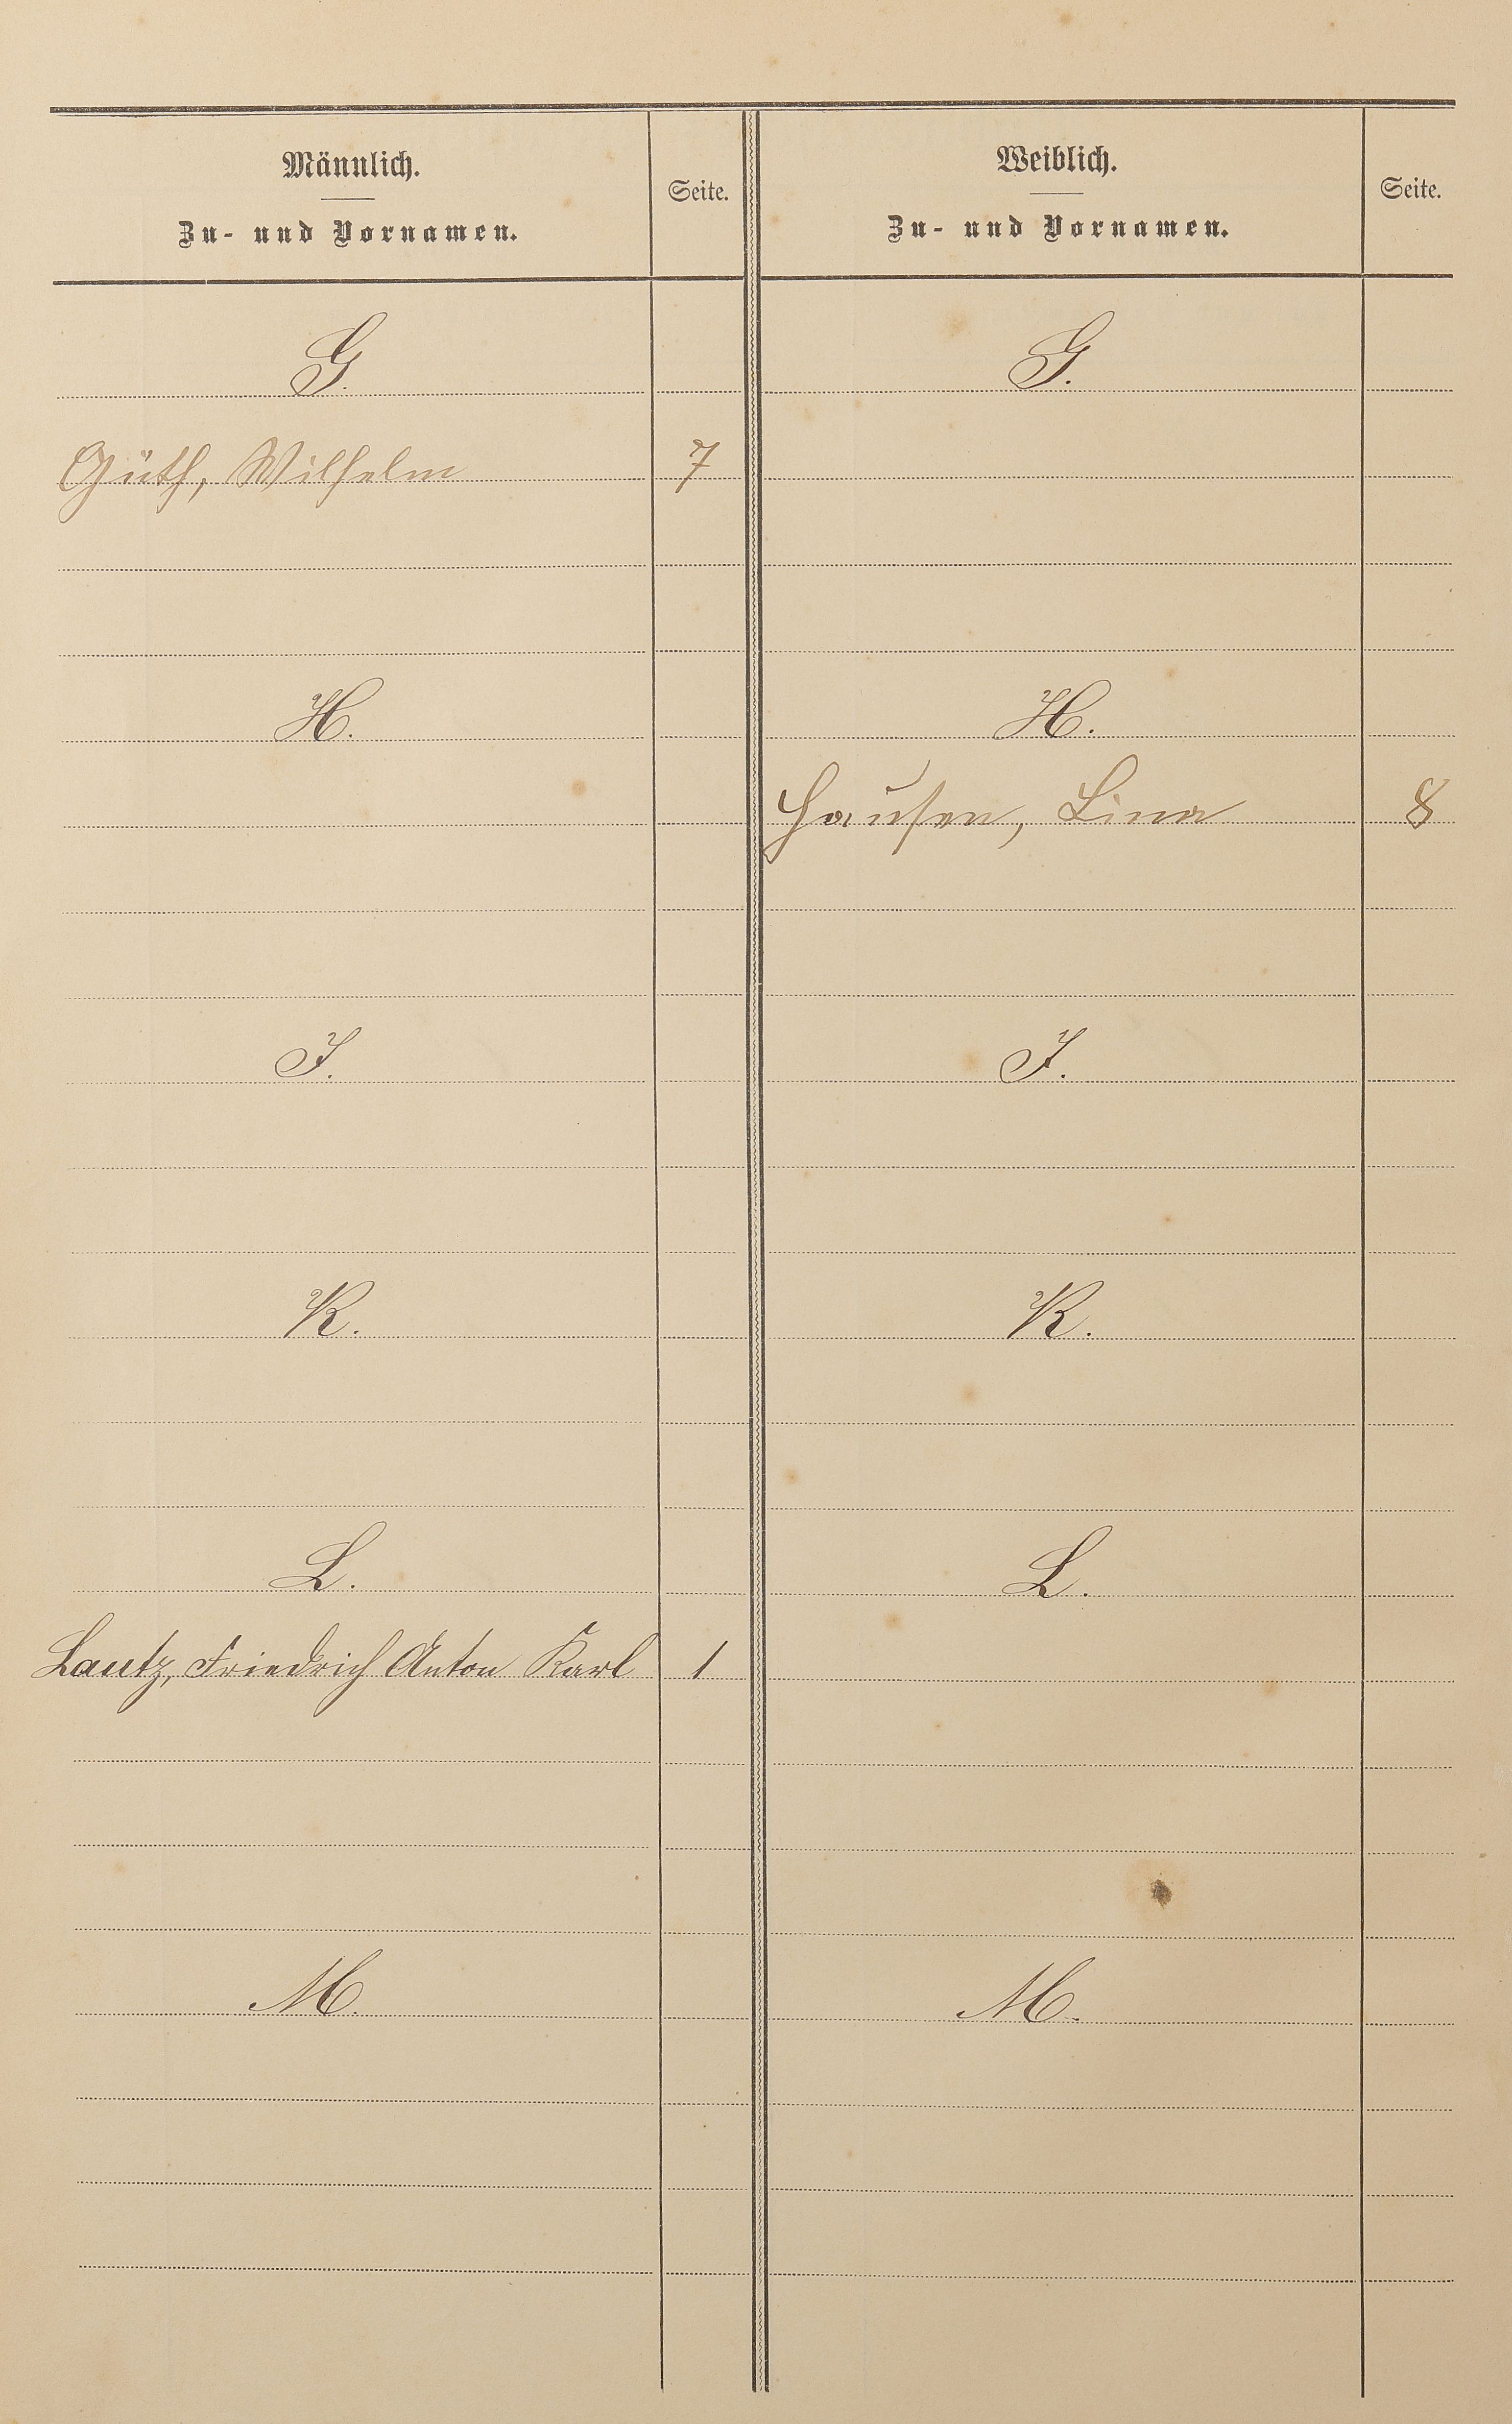 Männlich.
Zu- und Vornamen.
Seite.
Weiblich.
Zu- und Vornamen.
Seite.
G.
G.
Güth, Wilhelm
7
H.
H.
Hausen, Lina
8
I.
I.
K.
K.
L.
L.
Lautz, Friedrich Anton Karl
1
M.
M.